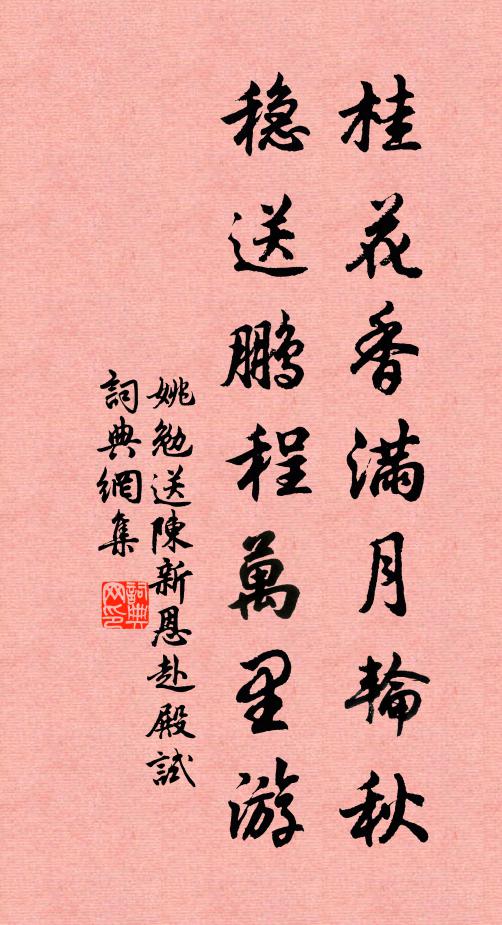 桂花香滿月輪秋
穏送鵬程萬里游
姚勉送陳新恩赴殿試
詞典網集
詞典
网印